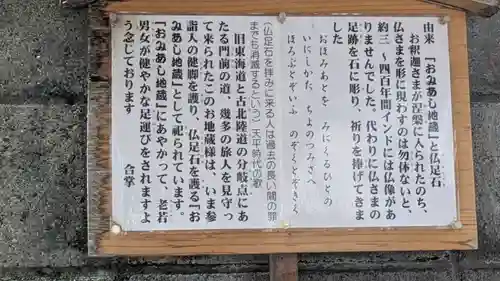 由来 『おみあし地蔵』と仏足石
お釈迦さまが涅槃に入られたのち、
仏さまを形に現わすのは勿体ないと、
約三〜四百年間インドには仏像があ
りませんでした。代わりに仏さまの
足跡を石に彫り、祈りを捧げてきま
した
おほみあとを みにくるひとの
いにしかた ちよのつみさへ
ほろぶとぞいふ のぞくとぞきく
(仏足石を拝みに来る人は過去の長い間の罪
までも消滅するという)天平時代の歌
旧東海道と古北陸道の分岐点にあ
たる門前の道、幾多の旅人を見守っ
て来られたこのお地蔵様は、いま参
詣人の健脚を護り、仏足石を護る『お
みあし地蔵』として祀られています。
『おみあし地蔵』にあやかって、老若
男女が健やかな足運びをされますよ
う念じております 合掌